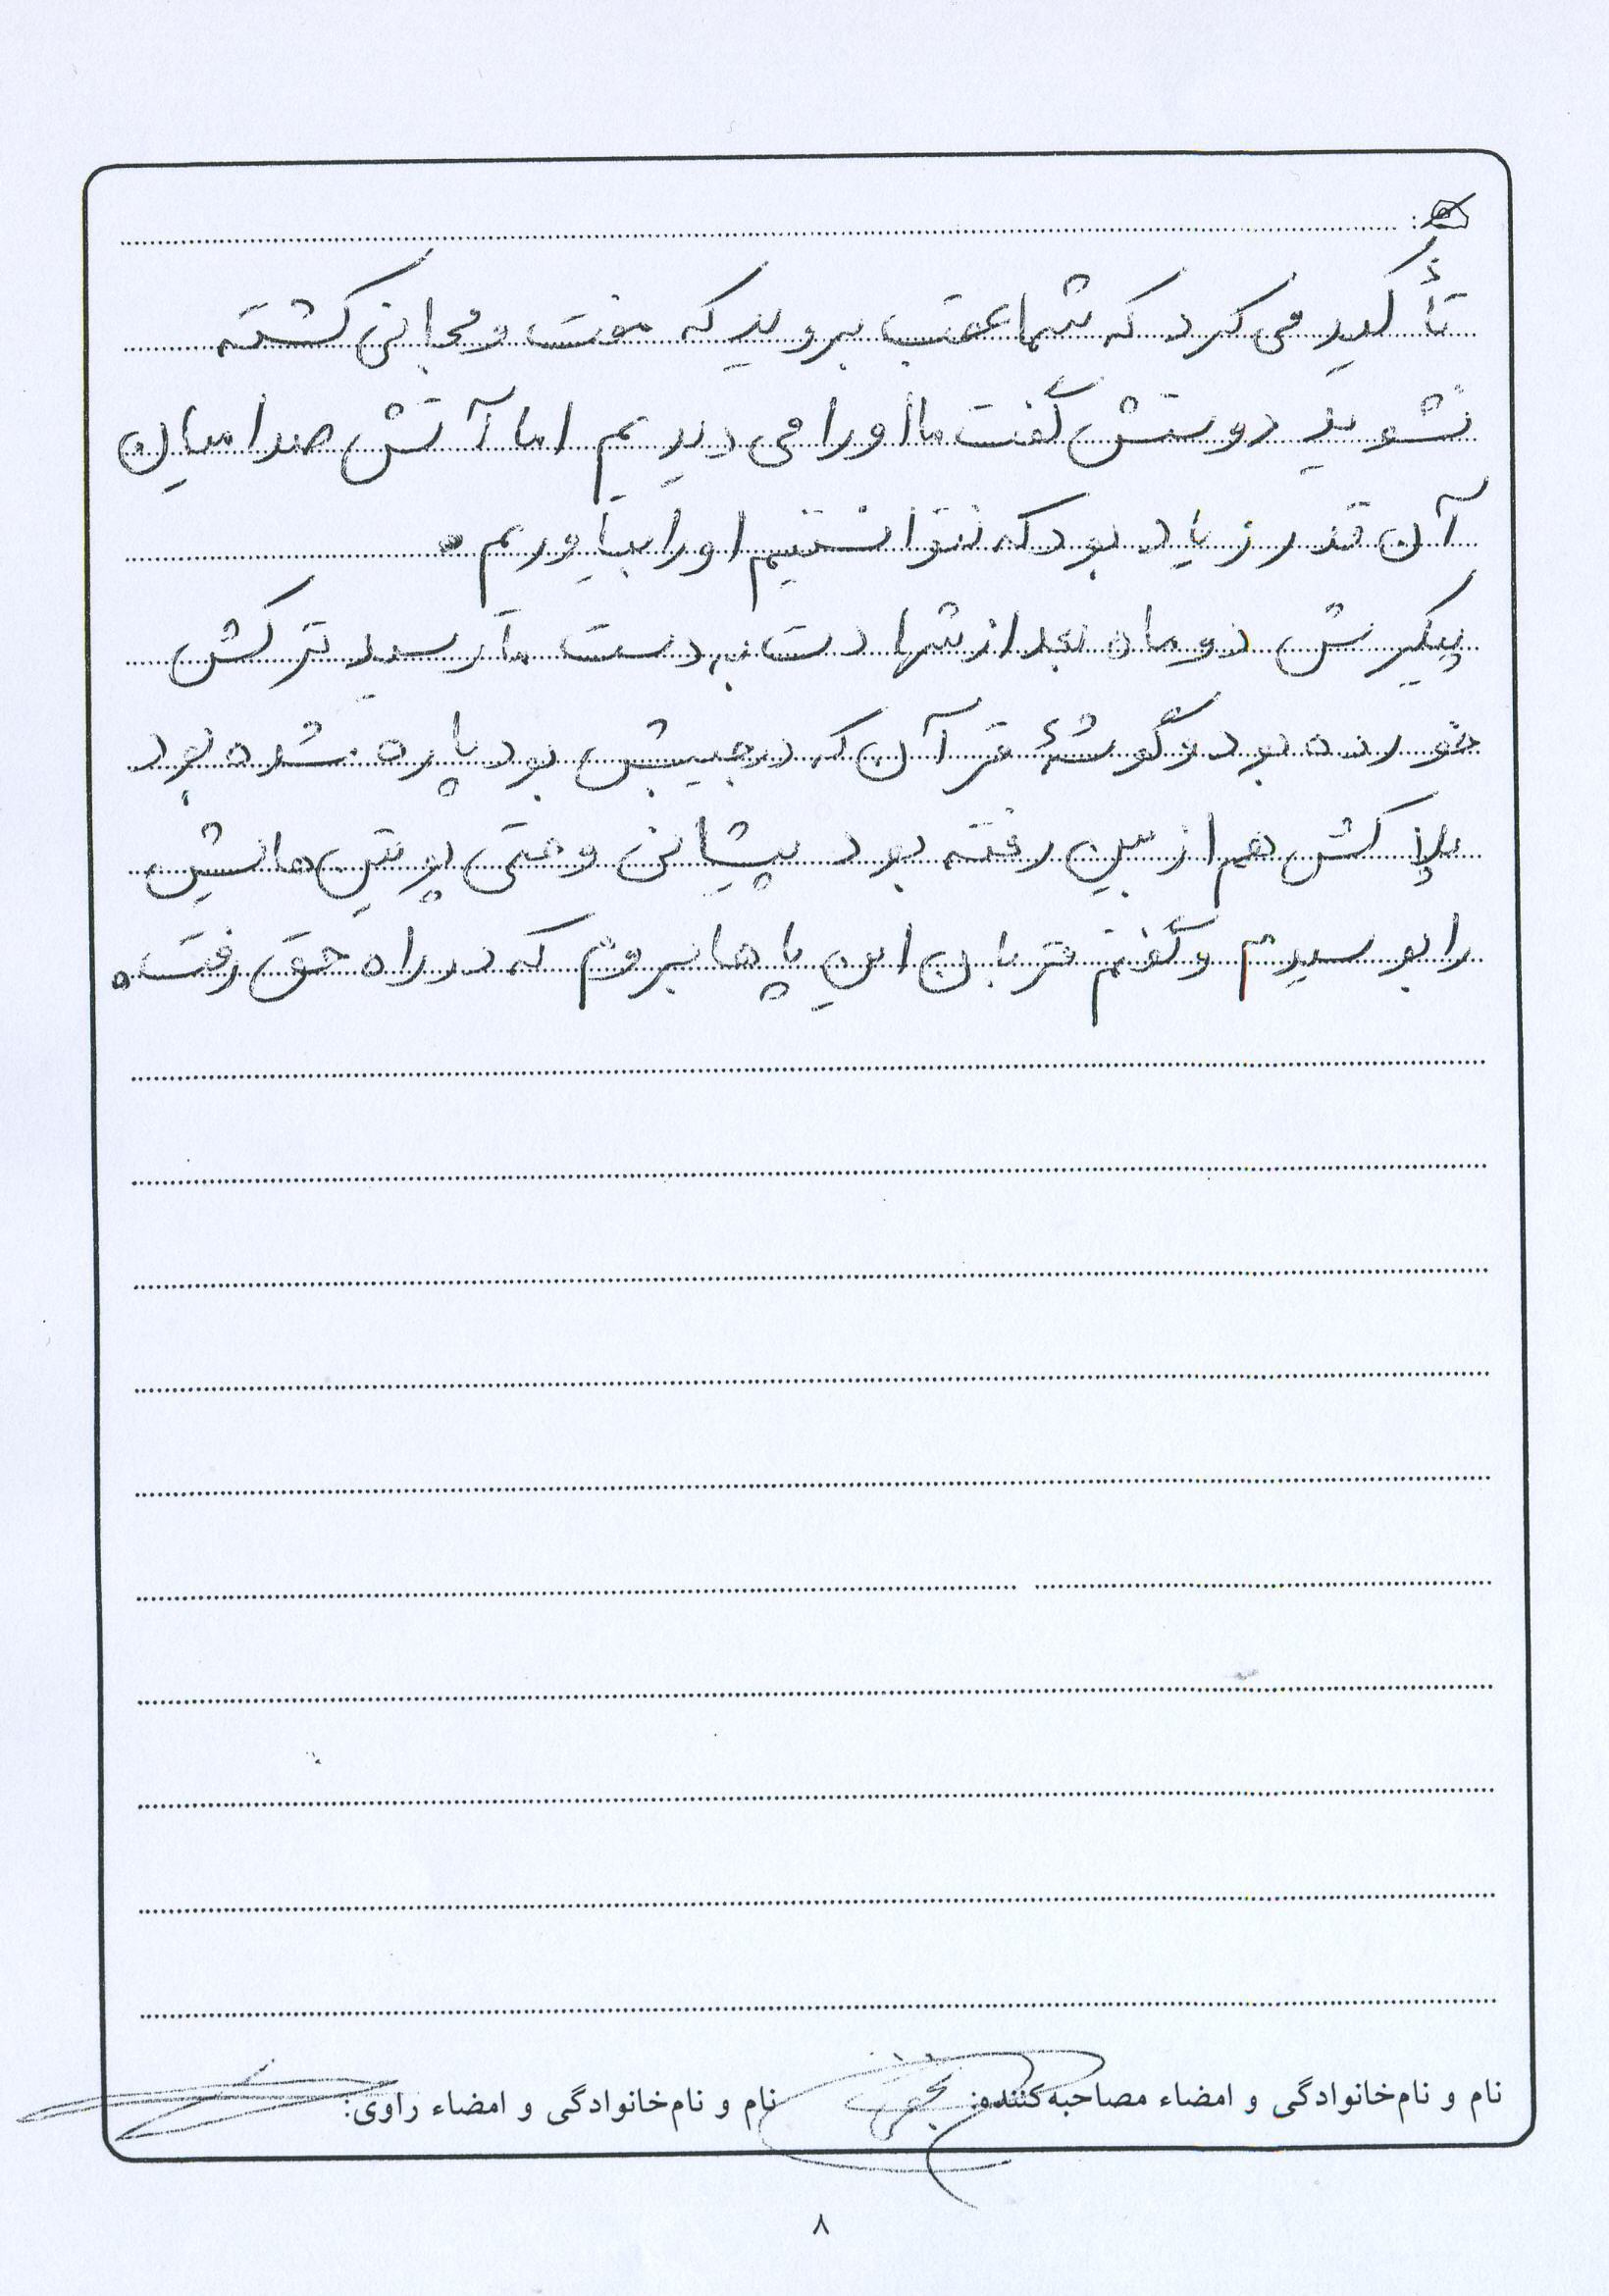 تأکید می کرد که شما عقب بروید که مفت و مجانی کشته
نشوید دوستش گفت ما او را می دیدیم اما آتش صدامیان
آن قدر زیاد بود که نتوانستیم او را بیاوریم.
پیکرش دو ماه بعد از شهادت به دست ما رسید ترکش
خورده بود و گوشهٔ قرآن که در جیبش بود پاره شده بود
پلاکش هم از بین رفته بود پیشانی و حتی پوتین هایش
را بوسیدم و گفتم قربان این پاها بروم که در راه حق رفت.
نام و نام‌خانوادگی و امضاء مصاحبه‌کننده: نام و نام‌خانوادگی و امضاء راوی:
۸